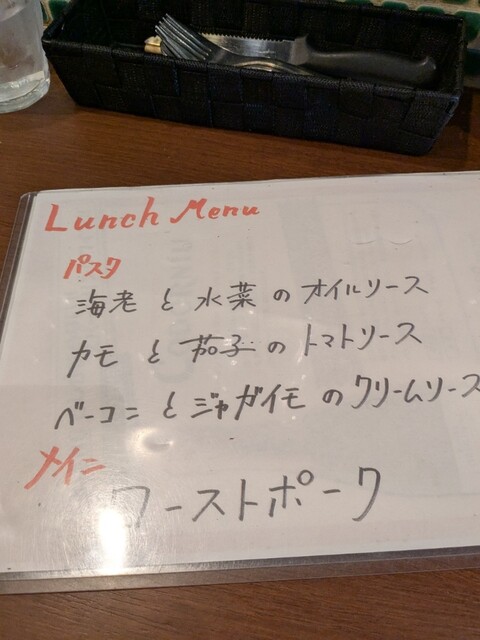 Lunch Menu
パスタ
海老と水菜のオイルソース
カモと茄子のトマトソース
ベーコンとジャガイモのクリームソース
メイン
ローストポーク